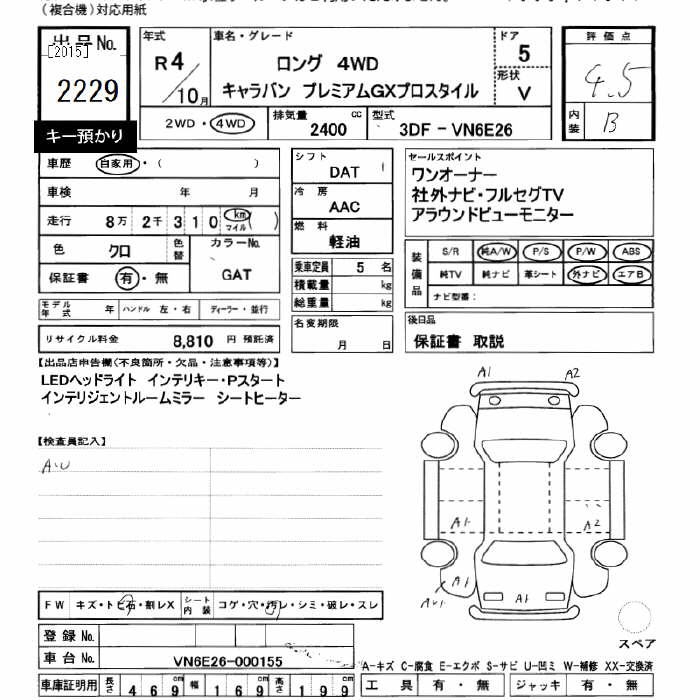 (複合機)対応用紙
出品No.
[2015]
2229
キー預かり
年式
R4/10月
車名・グレード
ロング 4WD
キャラバン プレミアムGXプロスタイル
ドア
5
形状
V
2WD・4WD
排気量
2400 cc
型式
3DF-VN6E26
評価点
4.5
内装
B
車歴 自家用・( )
車検 年 月
走行 8万2千310 km マイル ( )
色 クロ
色替
カラーNo.
GAT
保証書 有・無
モデル年式 年
ハンドル 左・右
ディーラー・並行
リサイクル料金 8,810 円 預託済
シフト
DAT
冷房
AAC
燃料
軽油
乗車定員 5 名
積載量 kg
総重量 kg
名変期限
月 日
セールスポイント
ワンオーナー
社外ナビ・フルセグTV
アラウンドビューモニター
装備品
S/R 純A/W P/S P/W ABS
純TV 純ナビ 革シート 外ナビ エアB
ナビ型番:
後日品
保証書 取説
【出品店申告欄(不良箇所・欠品・注意事項等)】
LEDヘッドライト インテリキー・Pスタート
インテリジェントルームミラー シートヒーター
【検査員記入】
A.U
A1
A2
A1
A2
A1
A1
FW キズ・トビ石・割レX
シート内装 コゲ・穴・汚レ・シミ・破レ・スレ
登録No.
車台No. VN6E26-000155
車庫証明用 長さ 469cm 幅 169cm 高さ 199cm
スペア
A-キズ C-腐食 E-エクボ S-サビ U-凹ミ W-補修 XX-交換済
工具 有・無 ジャッキ 有・無